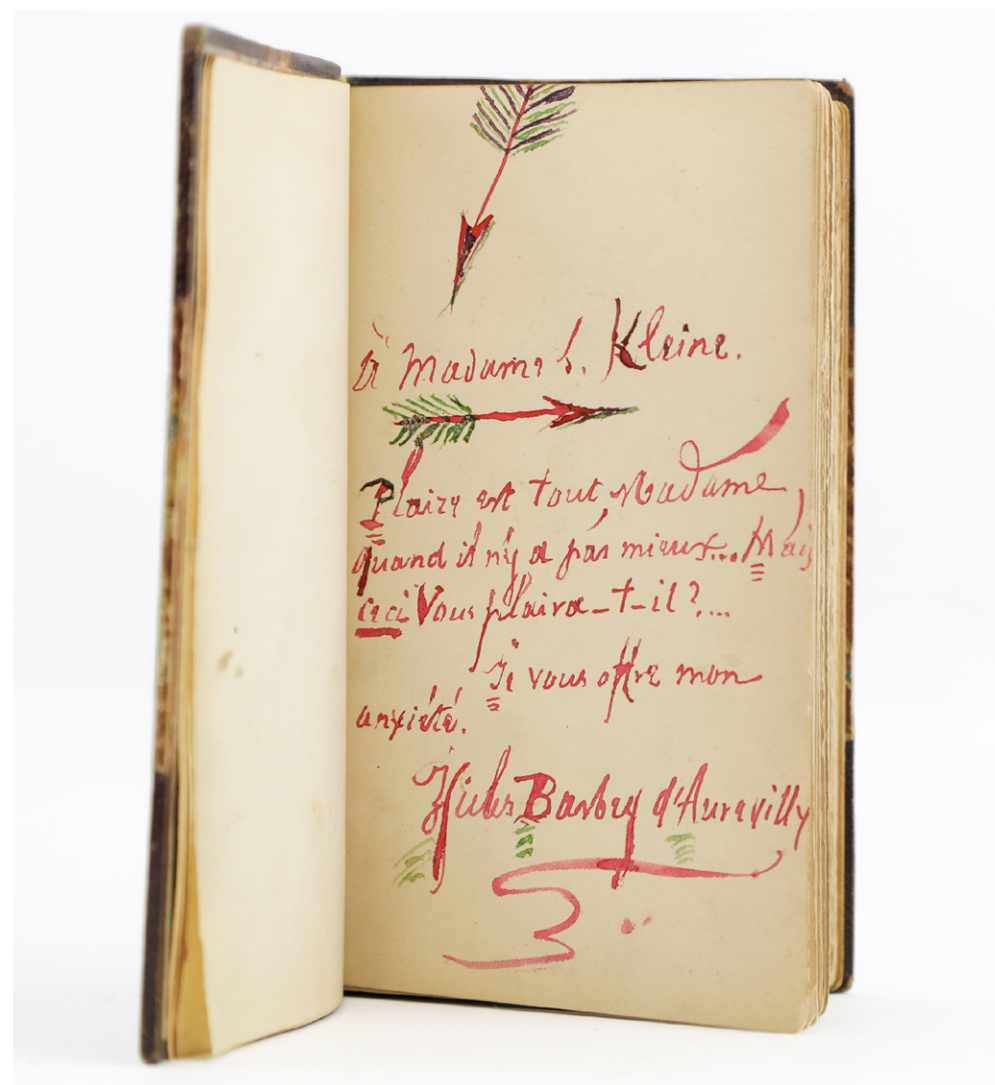 à Madame h. Kleine.
Plaire est tout, Madame,
quand il n'y a pas mieux... Mais
ceci Vous plaira-t-il?...
Je vous offre mon
anxiété.
Jules Barbey d'Aurevilly